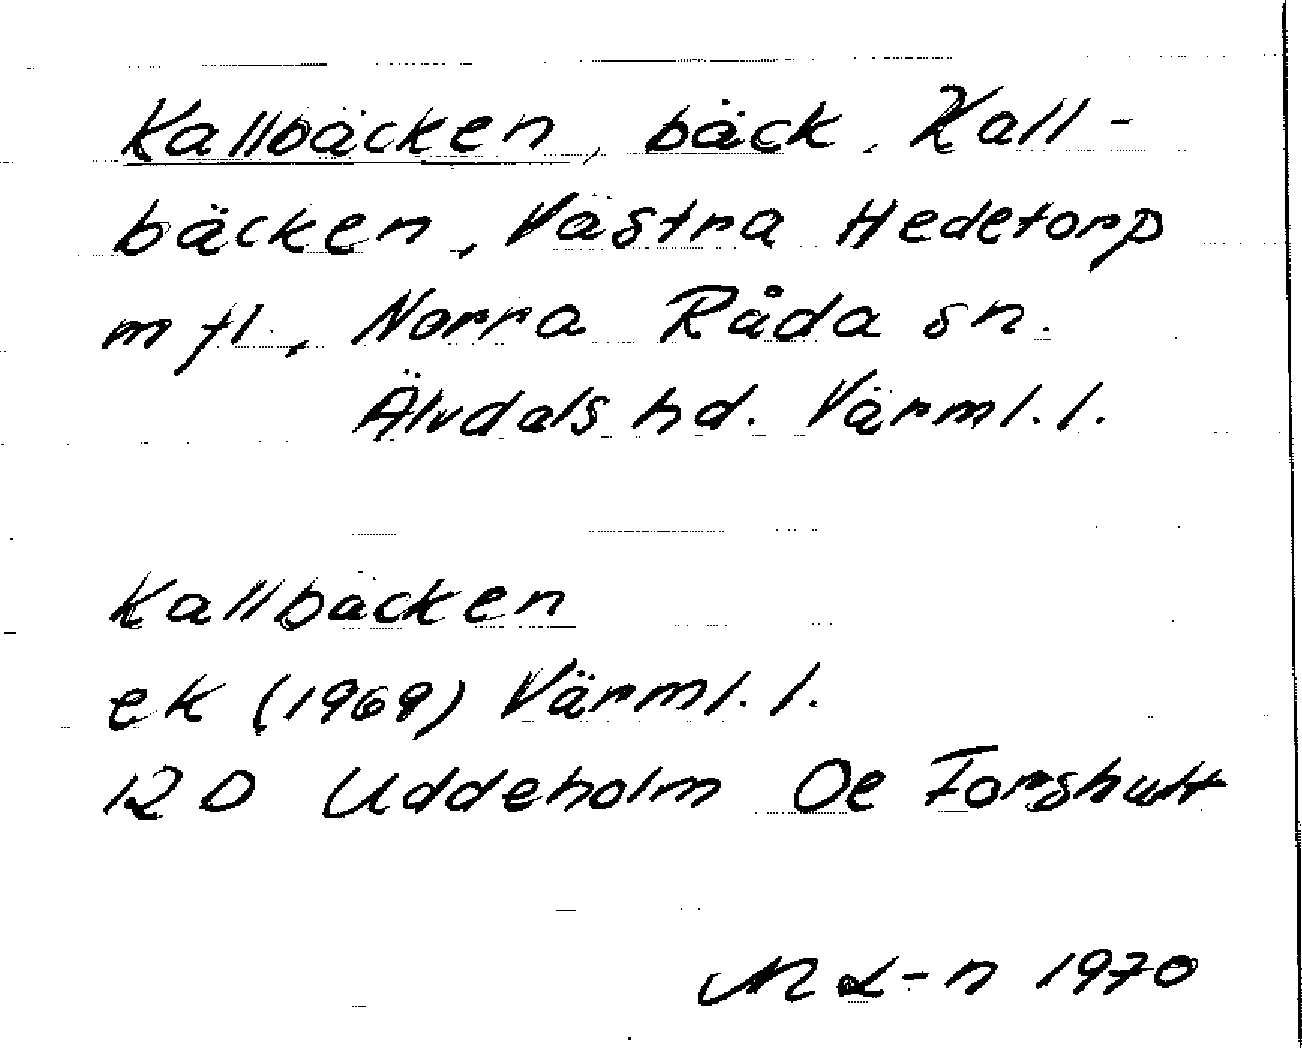 Kallbäcken, bäck. Kall-
bäcken, Västra Hedetorp
m fl., Norra Råda sn.
Älvdals hd. Värml. l.
Kallbäcken
ek (1969) Värml. l.
12 D Uddeholm Oe Forshult
1970